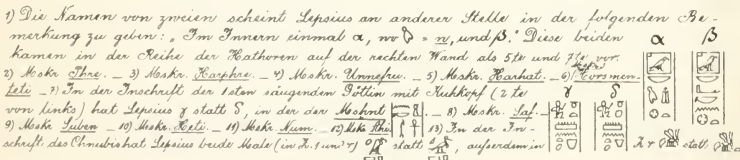 1) Die Namen von zweien scheint Lepsius an anderer Stelle in der folgenden Be-
merkung zu geben: „Im Innern einmal α, wo = n, und β." Diese beiden α β
kamen in der Reihe der Hathoren auf der rechten Wand als 5te und 7te vor.
2) Mskr Jhre. _ 3) Moskr. Harphre. _ 4) Moskr. Unnefru. _ 5) Moskr. Harhat. _ 6) Horsmen-
teti _ 7) In der Inschrift der 1sten säugenden Göttin mit Kuhkopf (2te γ δ
von links) hat Lepsius γ statt δ, in der der Mshnt _ 8) Moskr. Saf. _
9) Moskr Suben _ 10) Moskr. Heti. _ 11) Moskr. Num. _ 12) Moskr 13) In der In-
schrift des Chnubis hat Lepsius beide Male (in Z. 1 und 4) statt , ausserdem in Z. 4 statt